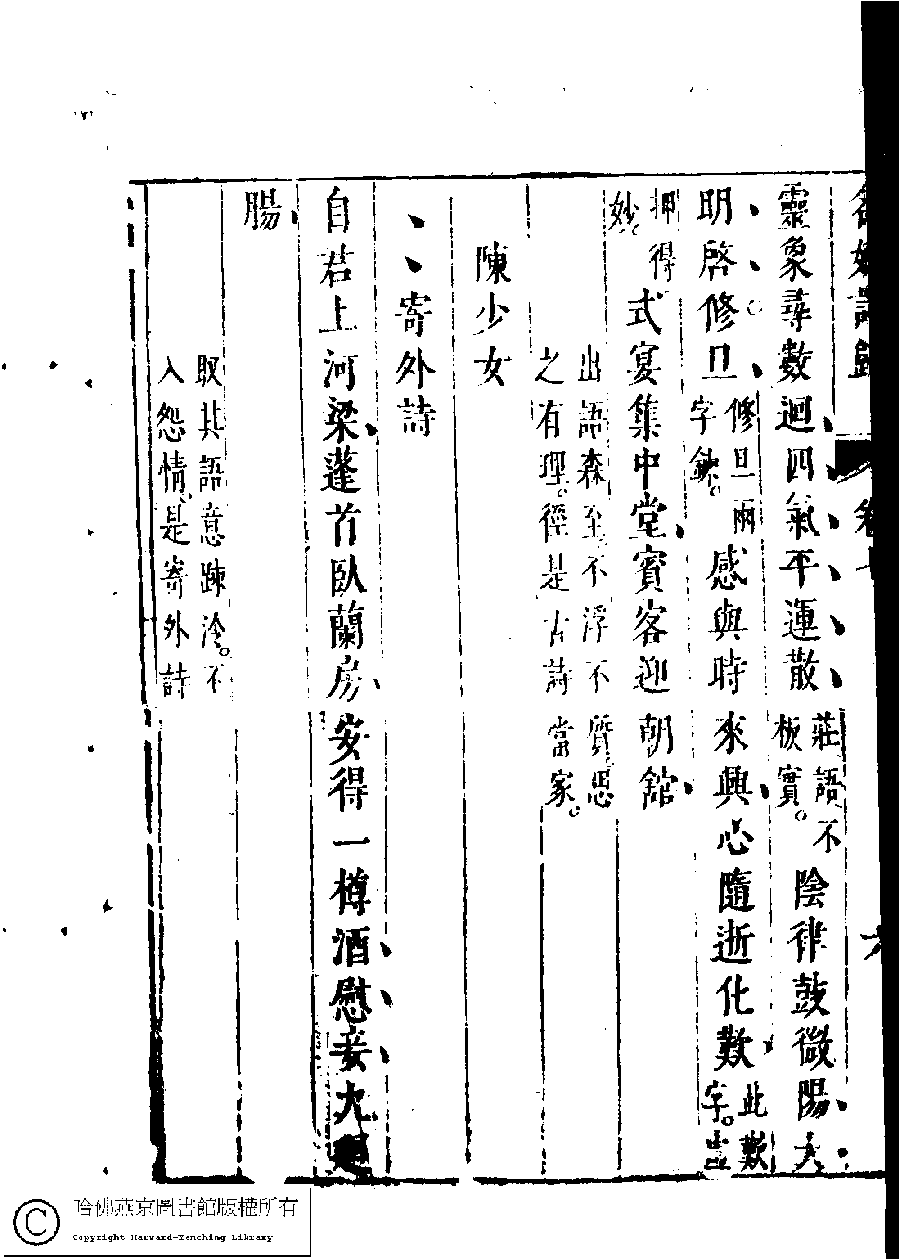 名媛詩歸 卷
靈象尋數迴四氣平運散莊語不板實。陰律鼓微陽大
明啓修旦修旦兩字鈔。感與時來興心隨逝化歎此歎字。出
押得妙。式宴集中堂賓客迎朝館
出語森至不浮不質思
之有理。徑是古詩當家。
陳少女
寄外詩
自君上河梁蓬首臥蘭房安得一樽酒慰妾九
腸
取其語意踈冷。不
入怨情是寄外詩
哈佛燕京圖書館版權所有
Copyright Harvard-Yenching Library